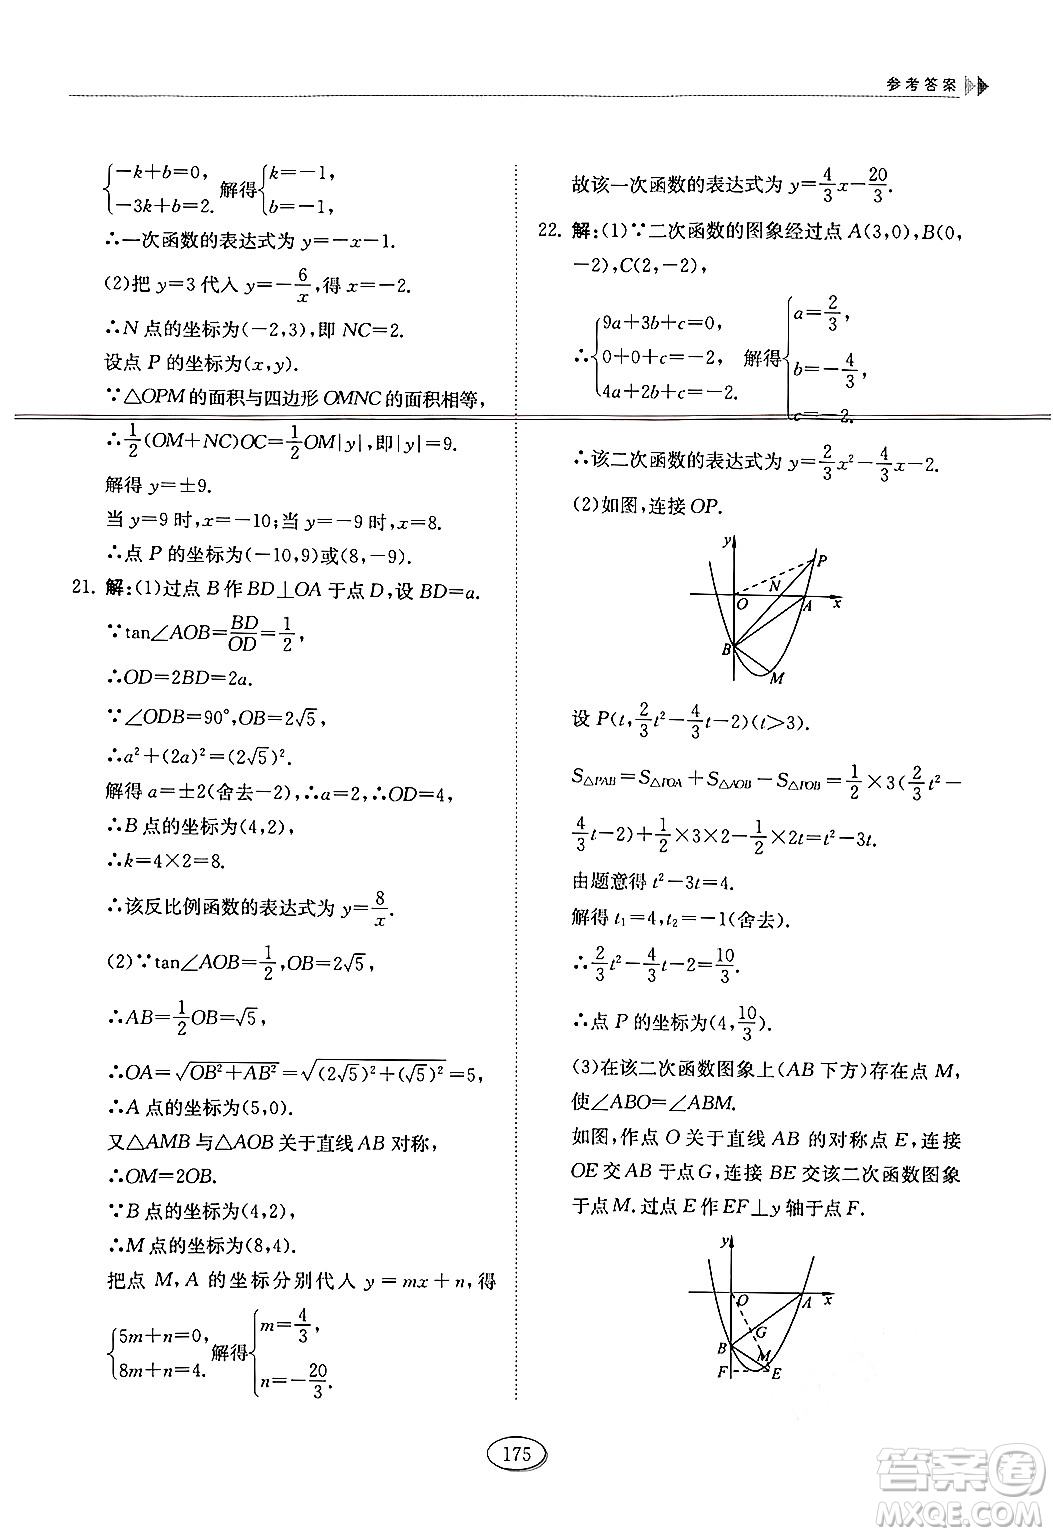 参考答案
{−k+b=0, −3k+b=2. 解得 {k=−1, b=−1,
∴一次函数的表达式为 y=−x−1.
(2)把 y=3 代入 y=−6/x,得 x=−2.
∴N 点的坐标为(−2,3),即 NC=2.
设点 P 的坐标为(x,y).
∵△OPM 的面积与四边形 OMNC 的面积相等,
∴1/2(OM+NC)OC=1/2OM|y|,即|y|=9.
解得 y=±9.
当 y=9 时,x=−10;当 y=−9 时,x=8.
∴点 P 的坐标为(−10,9)或(8,−9).
21. 解:(1)过点 B 作 BD⊥OA 于点 D,设 BD=a.
∵tan∠AOB=BD/OD=1/2,
∴OD=2BD=2a.
∵∠ODB=90°,OB=2√5,
∴a²+(2a)²=(2√5)².
解得 a=±2(舍去−2),∴a=2,∴OD=4,
∴B 点的坐标为(4,2),
∴k=4×2=8.
∴该反比例函数的表达式为 y=8/x.
(2)∵tan∠AOB=1/2,OB=2√5,
∴AB=1/2OB=√5,
∴OA=√(OB²+AB²)=√((2√5)²+(√5)²)=5,
∴A 点的坐标为(5,0).
又△AMB 与△AOB 关于直线 AB 对称,
∴OM=2OB.
∵B 点的坐标为(4,2),
∴M 点的坐标为(8,4).
把点 M,A 的坐标分别代入 y=mx+n,得
{5m+n=0, 8m+n=4. 解得 {m=4/3, n=−20/3.
故该一次函数的表达式为 y=4/3x−20/3.
22. 解:(1)∵二次函数的图象经过点 A(3,0),B(0,
−2),C(2,−2),
∴{9a+3b+c=0, 0+0+c=−2, 4a+2b+c=−2. 解得 {a=2/3, b=−4/3, c=−2.
∴该二次函数的表达式为 y=2/3x²−4/3x−2.
(2)如图,连接 OP.
y
P
N
O
A
x
B
M
设 P(t,2/3t²−4/3t−2)(t>3).
S△PAB=S△POA+S△AOB−S△POB=1/2×3(2/3t²−
4/3t−2)+1/2×3×2−1/2×2t=t²−3t.
由题意得 t²−3t=4.
解得 t₁=4,t₂=−1(舍去).
∴2/3t²−4/3t−2=10/3.
∴点 P 的坐标为(4,10/3).
(3)在该二次函数图象上(AB 下方)存在点 M,
使∠ABO=∠ABM.
如图,作点 O 关于直线 AB 的对称点 E,连接
OE 交 AB 于点G,连接 BE 交该二次函数图象
于点 M. 过点 E 作 EF⊥y 轴于点 F.
y
O
A
x
G
B
M
F
E
175
答案圈
MXQE.COM